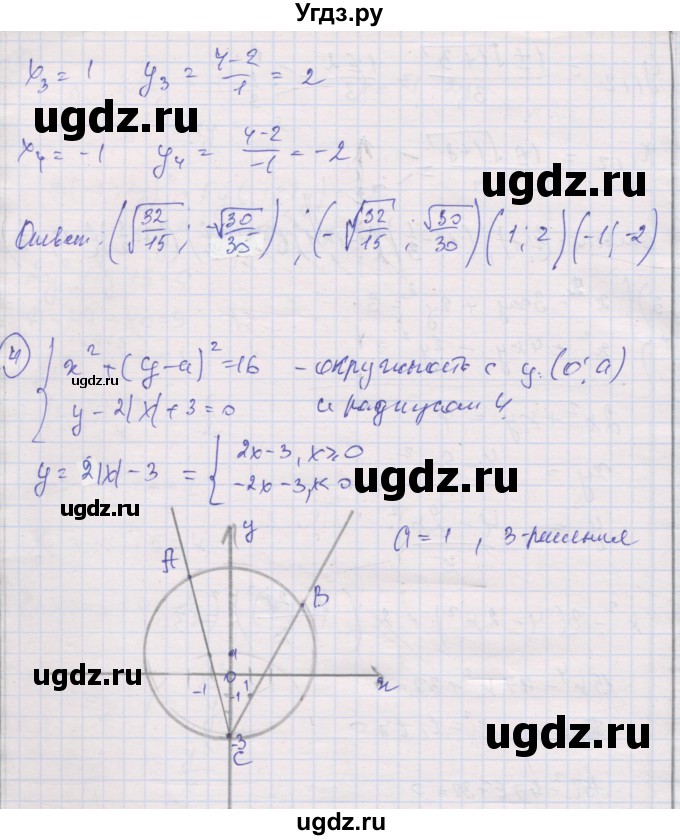 Угдз.ру
x₃ = 1   y₃ = (4-2)/1 = 2
ugdz.ru
x₄ = -1   y₄ = (4-2)/-1 = -2
ugdz.ru
Ответ. (√(32/15); -√30/30); (-√(32/15); √30/30) (1; 2) (-1; -2)
ugdz.ru
4) { x² + (y-a)² = 16 - окружность с ц. (0; a)
y - 2|x| + 3 = 0   и радиусом 4
y = 2|x| - 3 = { 2x-3, x≥0
-2x-3, x<0
ugdz.ru
ugdz.ru
y
a = 1, 3-решения
A
B
1
0
-1
1
-1
x
ugdz.ru
ugdz.ru
-3
C
ugdz.ru